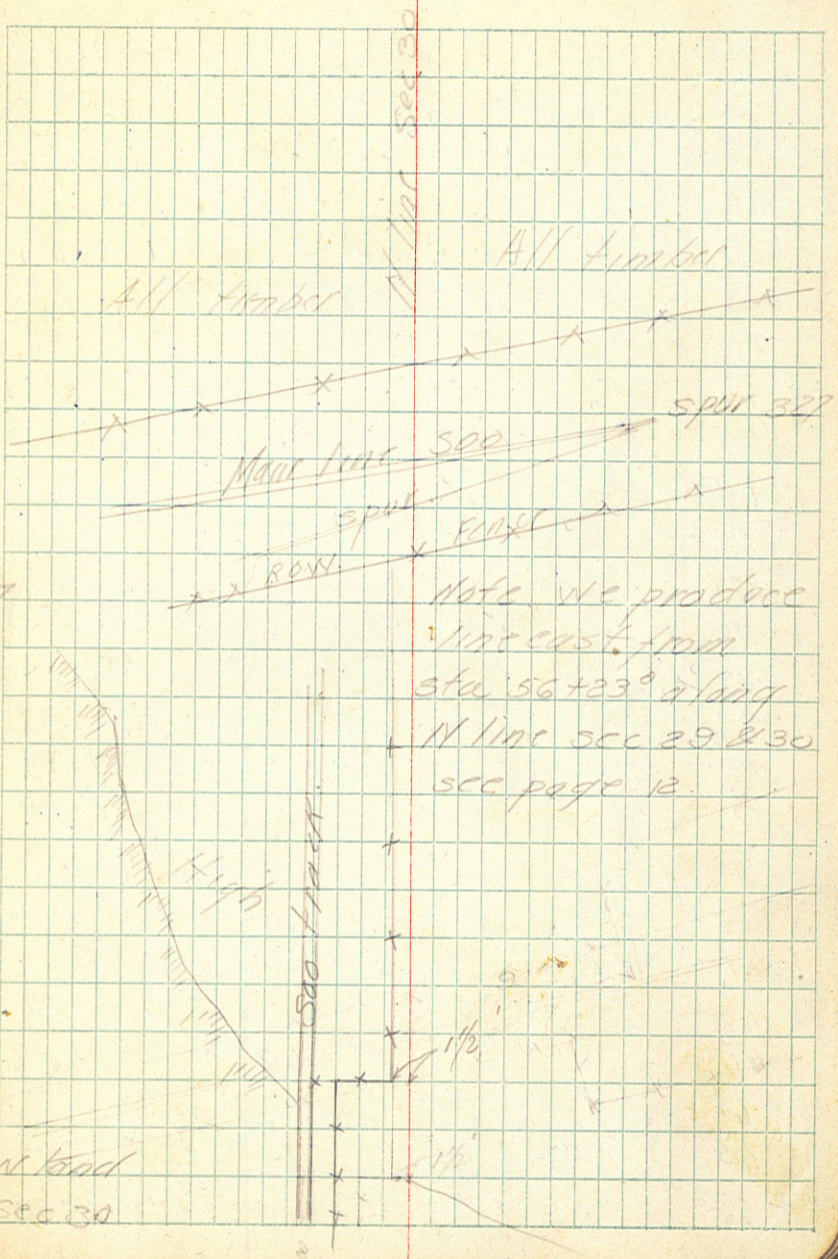 N line Sec 30
All timber
All timber
spur 327
Main line Soo
spur
ROW. Fence
Note We produce
line east from
sta 56+23⁰ along
N line sec 29 & 30
see page 12
High
Soo track
1½'
1½'
sec 30